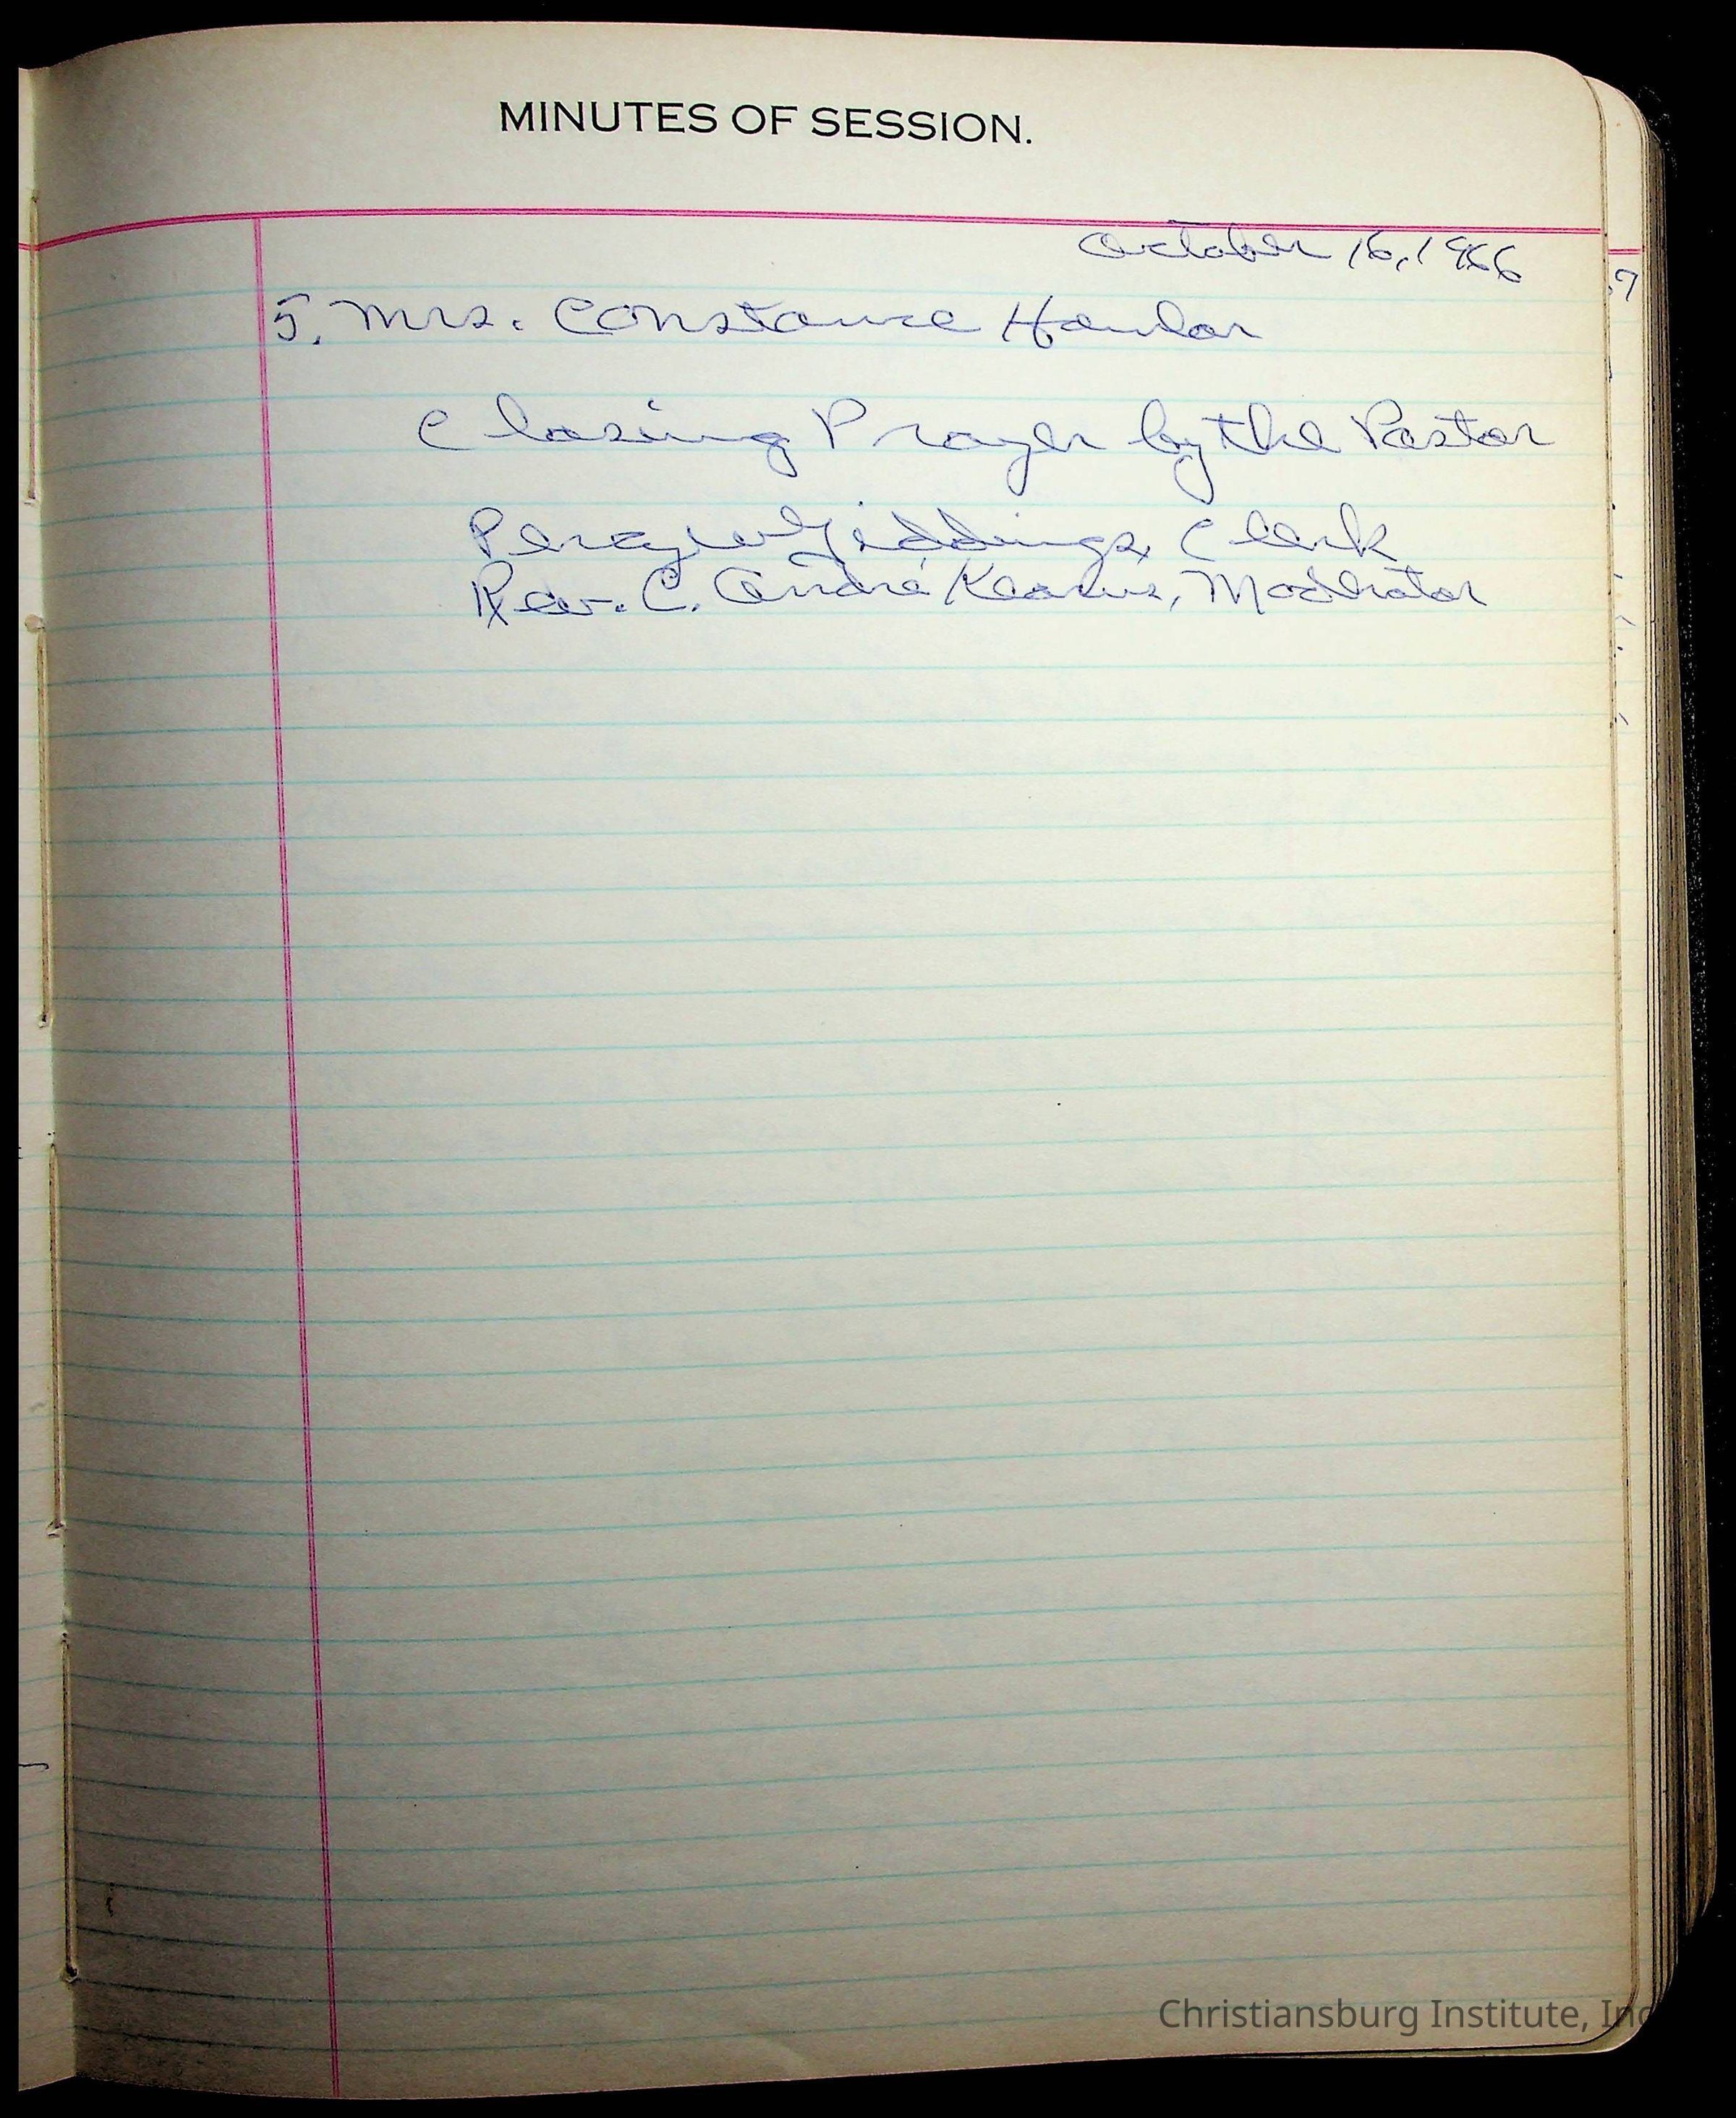 MINUTES OF SESSION.
October 16, 1966
5. Mrs. Constance
Closing Prayer by the Pastor
Percy W Giddings, Clerk
Rev. C. André Kearns, Moderator
Christiansburg Institute, Inc